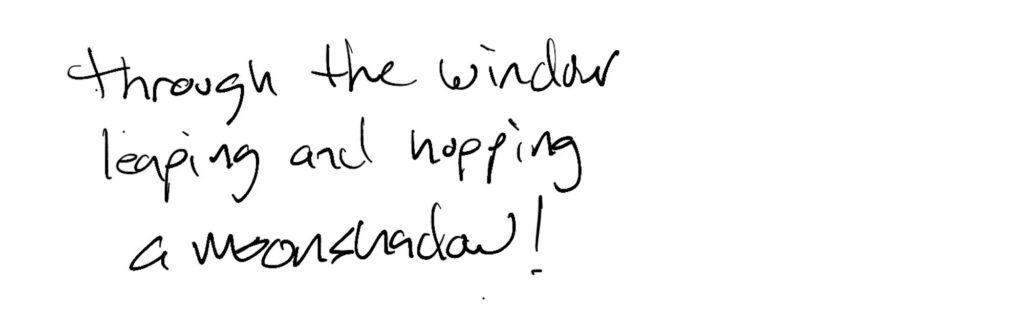 through the window
leaping and hopping
a moonshadow!